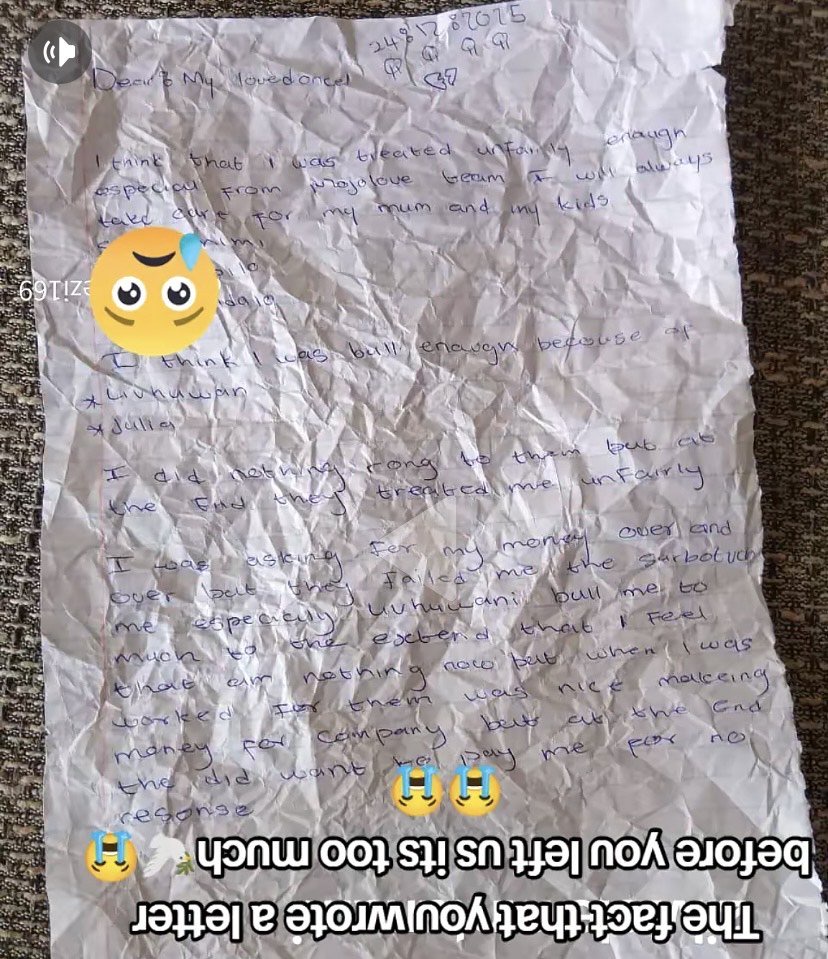 24 12 2025
Dear My lovedonce
I think that I was treated unfairly enaugh
especial from mojolove team I will always
take care for my mum and my kids
ezi169
I think I was bull enaugh because of
* uvhuwan
* Julia
I did nothing rong to them but at
the End they treated me unfairly
I was asking for my money over and
over but they failed me the
me especialy uvhuwani bull me to
much to the extend that I Feel
that am nothing now but when I was
worked for them was nice makeing
money for company but at the End
the did want to pay me for no
resonse
The fact that you wrote a letter
before you left us its too much